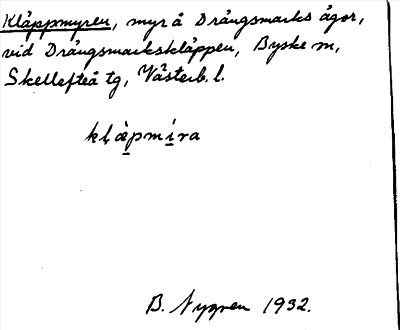 Kläppmyren, myr å Drängsmarks ägor,
vid Drängsmarkskläppen, Byske sn,
Skellefteå tg, Västerb. l.
klæ̀pmíra
B. Nygren 1932.